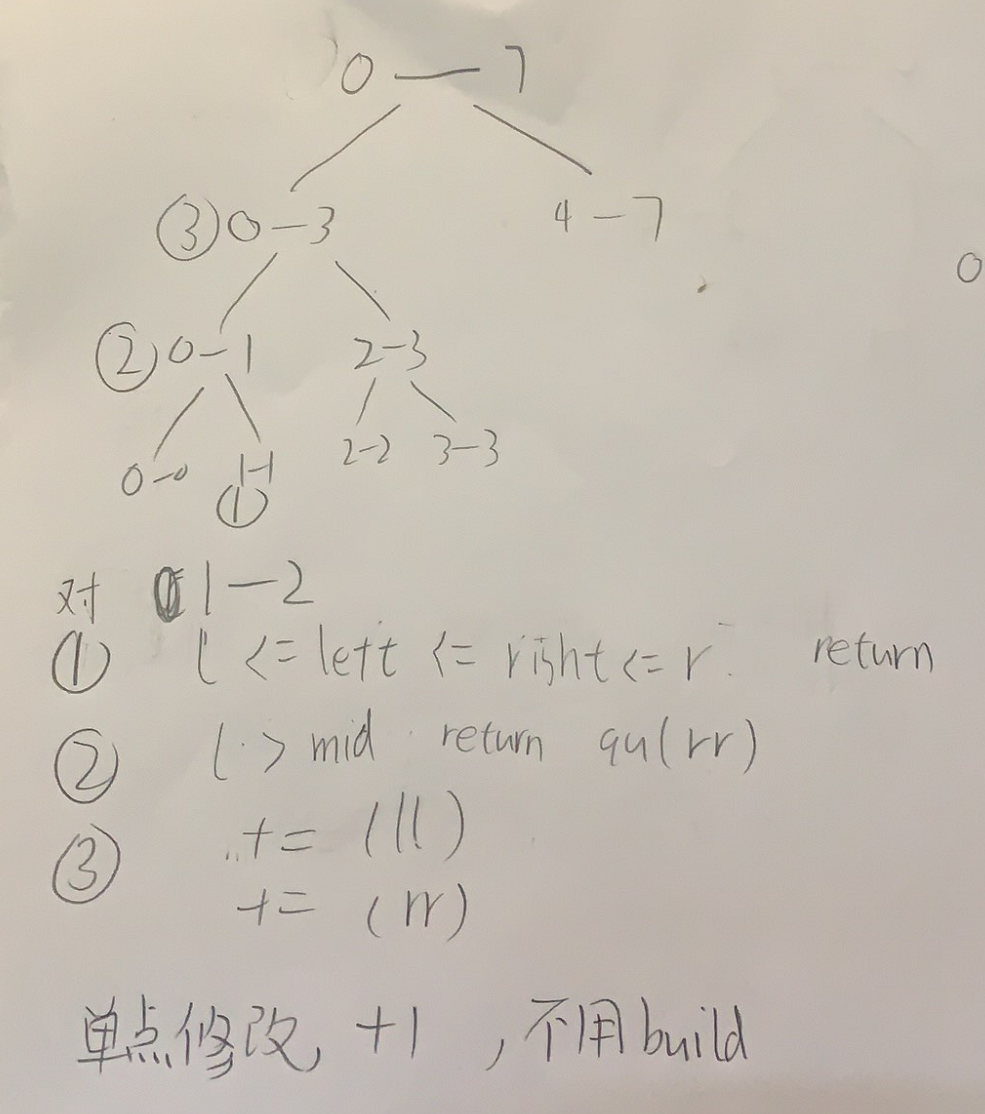 0 — 7
③ 0-3 4-7
0
② 0-1 2-3
0-0 1-1 2-2 3-3
①
对 1-2
① l <= left <= right <= r. return
② l > mid return qu(rr)
③ += (ll)
+= (rr)
单点修改, +1, 不用build